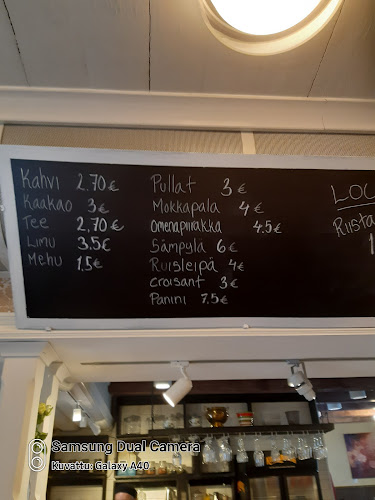 Kahvi 2.70 €
Kaakao 3 €
Tee 2,70 €
Limu 3.5 €
Mehu 1,5 €
Pullat 3 €
Mokkapala 4 €
Omenapiirakka 4.5 €
Sämpylä 6 €
Ruisleipä 4 €
Croisant 3 €
Panini 7,5 €
LOC
Riista
1
Samsung Dual Camera
Kuvattu: Galaxy A40